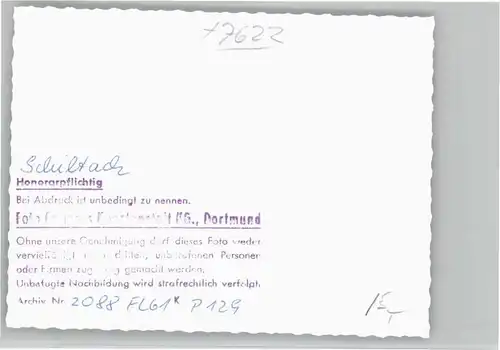 +7622
Schiltach
Honorarpflichtig
Bei Abdruck ist unbedingt zu nennen.
Foto KG., Dortmund
Ohne unsere Genehmigung darf dieses Foto weder
vervielfältigt unbefugten Personen
oder Firmen zugängig gemacht werden.
Unbefugte Nachbildung wird strafrechtlich verfolgt.
Archiv Nr. 2088 FLG1K P129